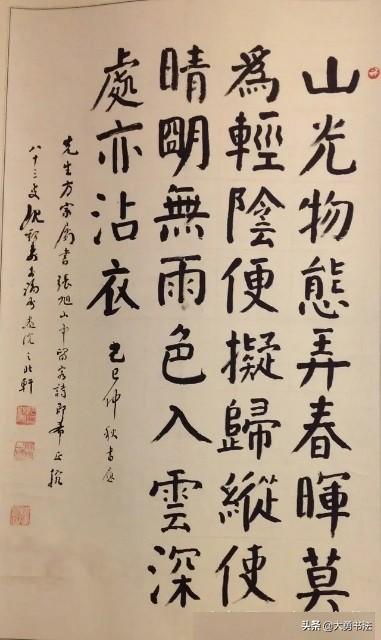 山光物態弄春暉莫
爲輕陰便擬歸縱使
晴明無雨色入雲深
處亦沾衣 己巳仲秋書應
先生方家屬書張旭山中留客詩即希正
八十三叟 之北軒
头条 @大勇书法